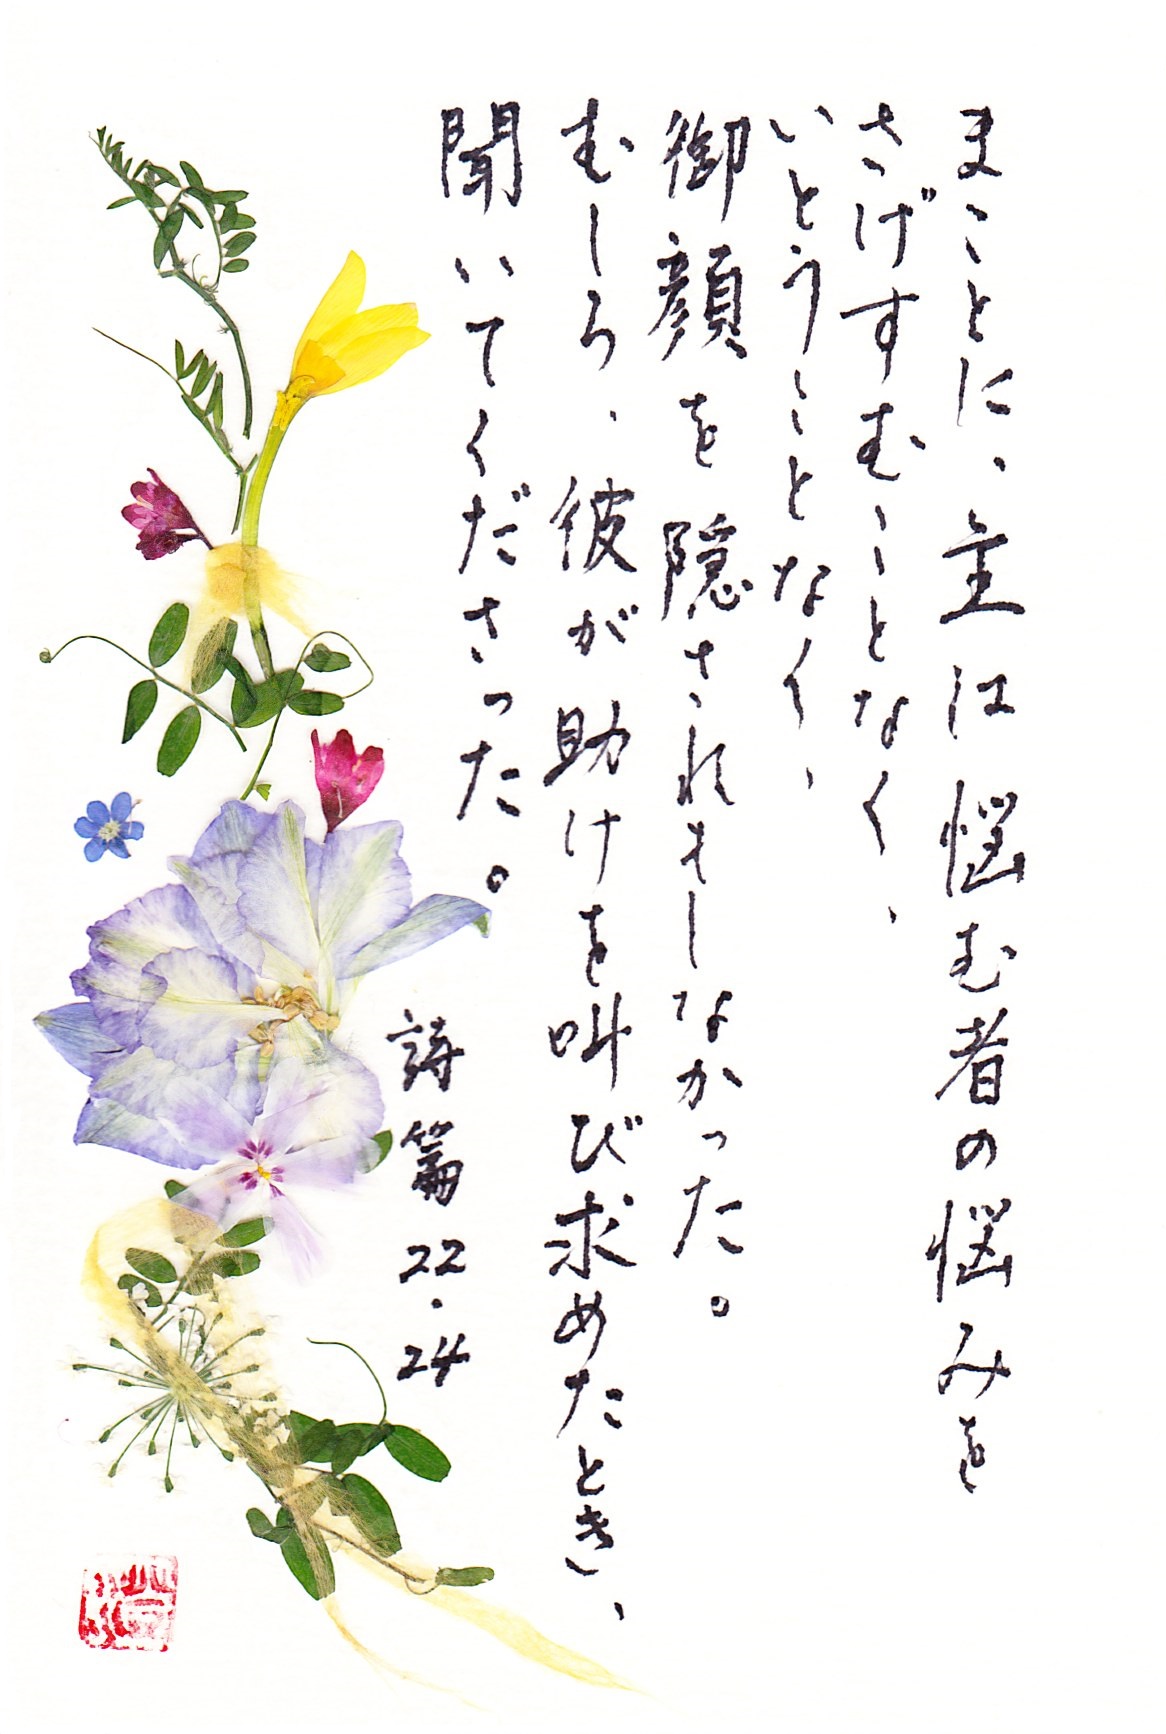 まことに、主は悩む者の悩みを
さげすむことなく、
いとうことなく、
御顔を隠されもしなかった。
むしろ、彼が助けを叫び求めたとき、
聞いてくださった。
詩篇22.24